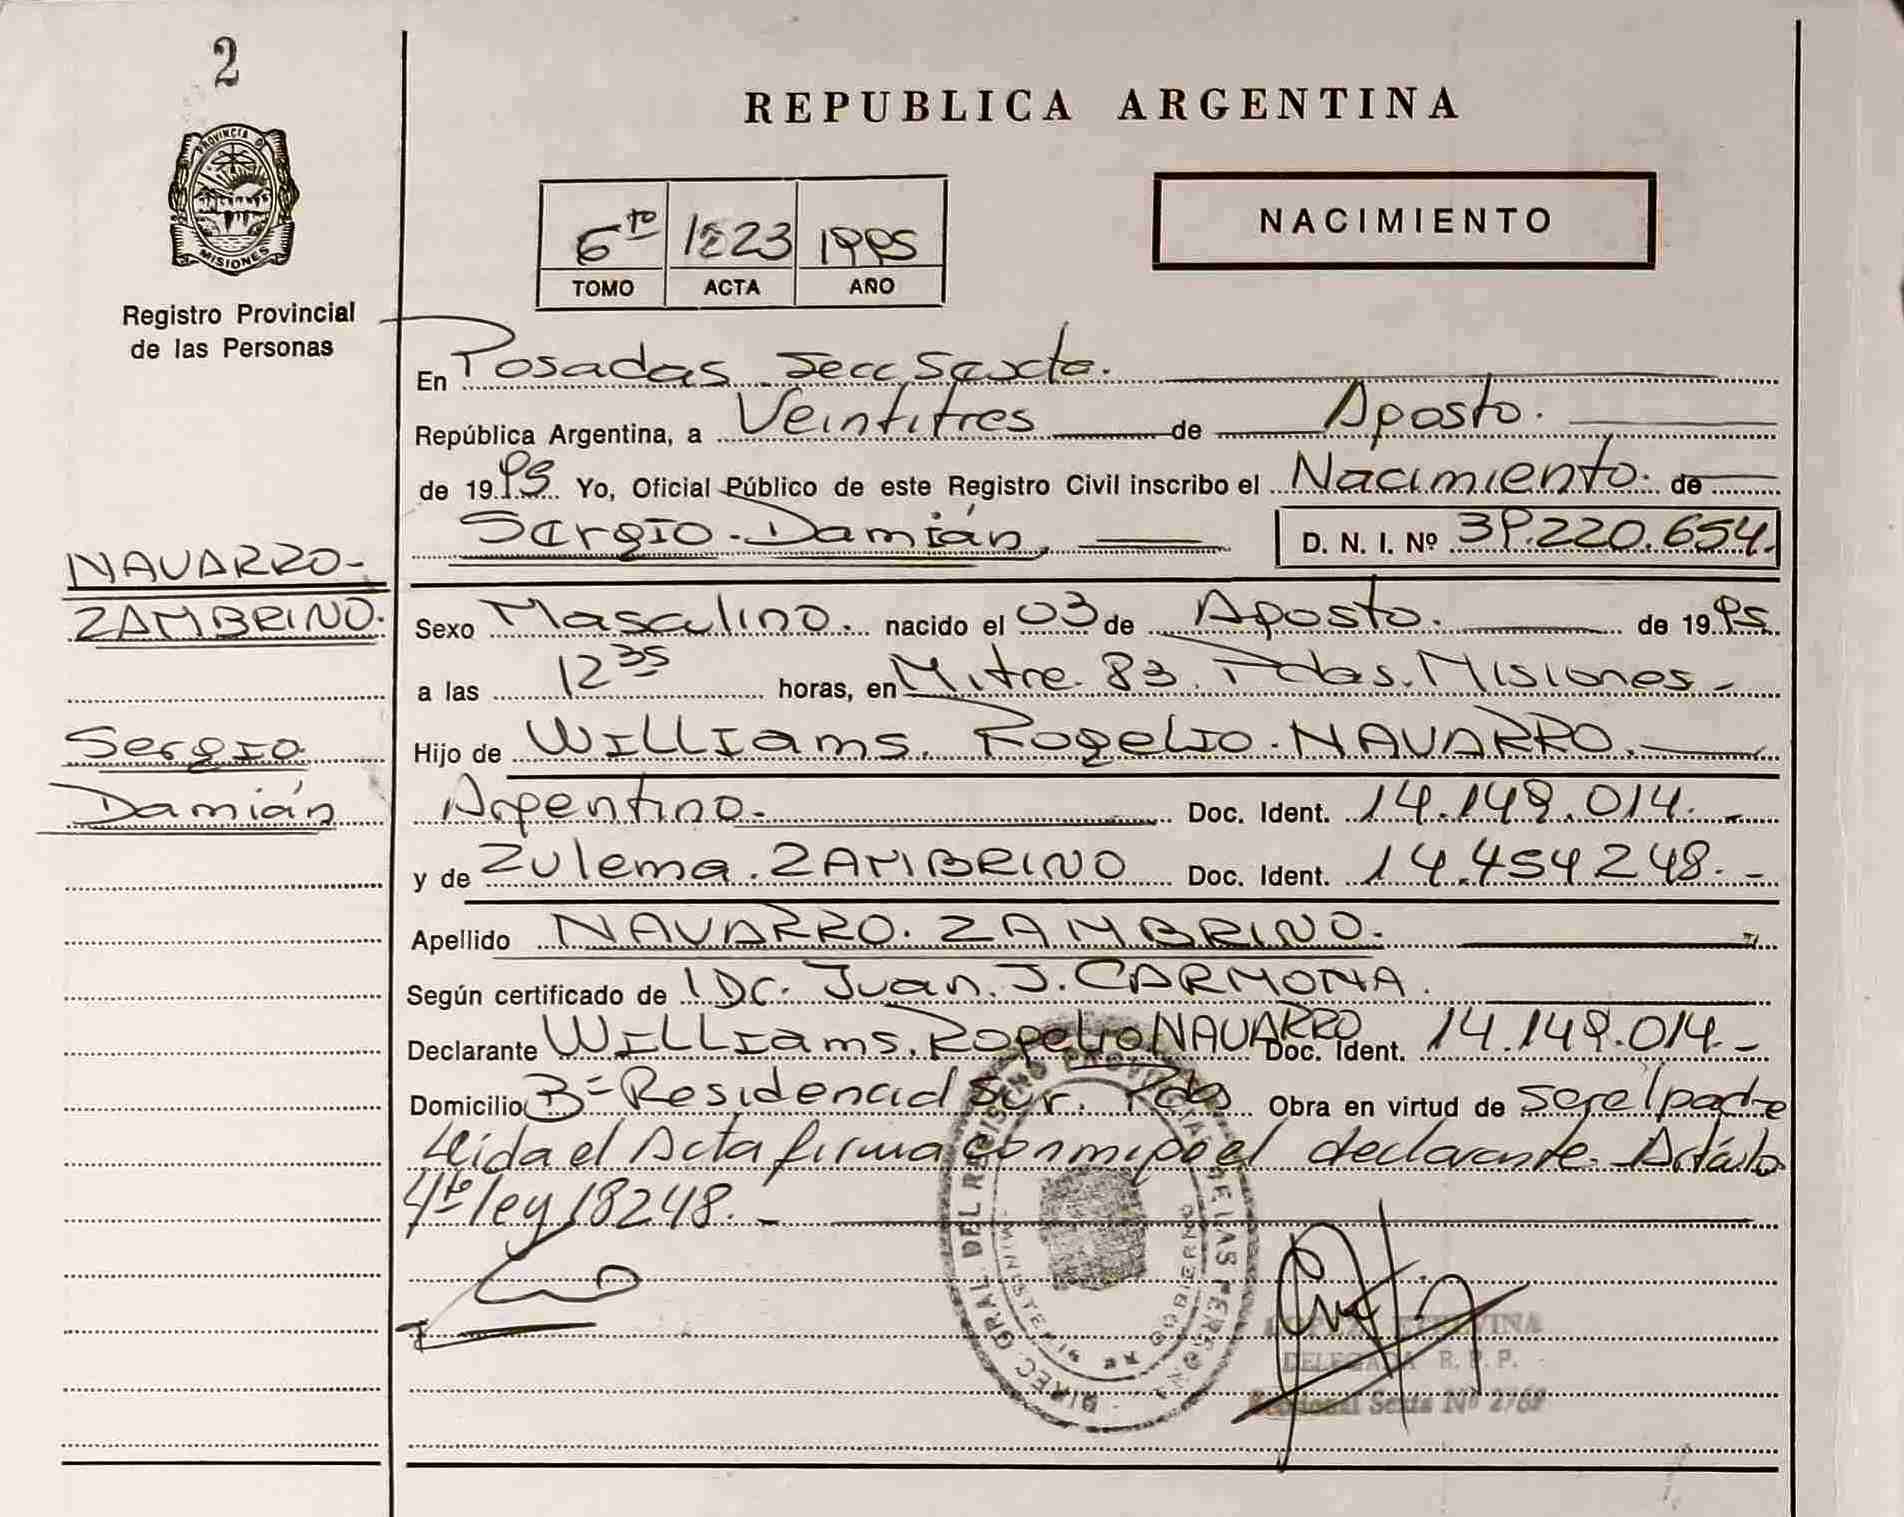 2
REPUBLICA ARGENTINA
PROVINCIA DE
MISIONES
Registro Provincial
de las Personas
6to 1223 1995
TOMO ACTA AÑO
NACIMIENTO
En Posadas Secc Sexta.
República Argentina, a Veintitres de Agosto.
de 1995. Yo, Oficial Público de este Registro Civil inscribo el Nacimiento. de
Sergio. Damián, D. N. I. Nº 39.220.654.
NAVARRO-
ZAMBRINO.
Sergio
Damián
Sexo Masculino. nacido el 03 de Agosto. de 1995.
a las 12 35 horas, en Mitre. 83. Pdas. Misiones -
Hijo de WILLIams. Rogelio. NAVARRO.
Argentino. Doc. Ident. 14.149.014.-
y de Zulema. ZAMBRINO Doc. Ident. 14.454248.-
Apellido NAVARRO. ZAMBRINO.
Según certificado de Juan. J. CARMONA.
Declarante WILLIams. Rogelio NAVARRO Doc. Ident. 14.149.014.-
Domicilio Bº Residencial Sur. Pdas Obra en virtud de ser el padre
Leida el Acta firma conmigo el declarante. Artículo
4to ley 18248.-
DIREC GRAL DEL REGISTRO PROVINCIAL DE LAS PERSONAS
MINISTERIO DE GOBIERNO
DELEGADA R. P. P.
Seccional Sexta Nº